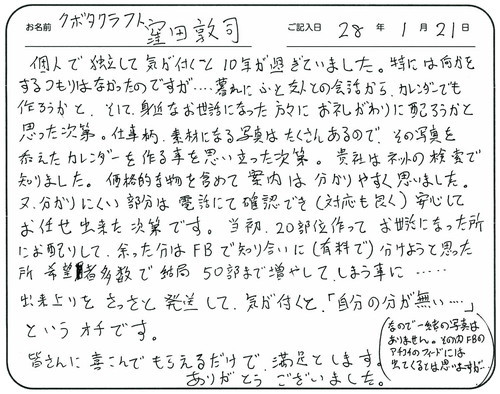 お名前 クボタクラフト 窪田敦司 ご記入日 28 年 1 月 21 日
個人で独立して気が付くと10年が過ぎていました。特には何かを
するつもりはなかったのですが‥‥暮れにふと友人との会話から、カレンダーでも
作ろうかと、そして、身近なお世話になった方々にお礼がわりに配ろうかと
思った次第。仕事柄、素材になる写真はたくさんあるので、その写真を
添えたカレンダーを作る事を思い立った次第。貴社はネットの検索で
知りました。価格的な物を含めて案内は分かりやすく思いました。
又、分かりにくい部分は電話にて確認でき(対応も良く)安心して
お任せ出来た次第です。当初、20部位作ってお世話になった所
にお配りして、余った分はFBで知り合いに(有料で)分けようと思った
所 希望者多数で結局50部まで増やしてしまう事に‥‥‥
出来上りをさっさと発送して、気が付くと、「自分の分が無い‥‥」
というオチです。
皆さんに喜こんでもらえるだけで、満足とします。
ありがとうございました。
(なので一緒の写真は
ありません。そのカFBの
フィードには
出てくるとは思いますが‥)